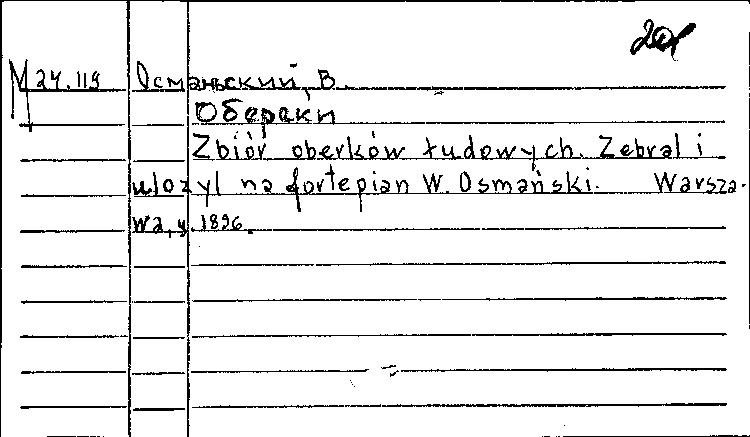 М 24.119 Османьский, В.
Обераки
Zbiór oberków łudowych. Zebral i
ulozyl na fortepian W. Osmański. Warsza-
wa, y. 1896.